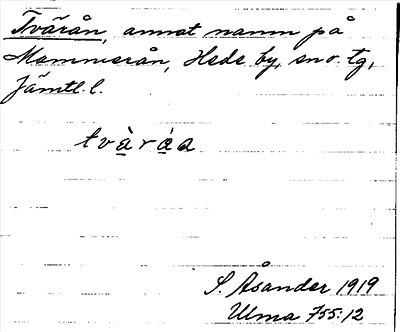 Tvärån, annat namn på
Mammerån, Hede by, sn o. tg,
Jämtl. l.
tvàráa
S. Åsander 1919
Ulma 755:12